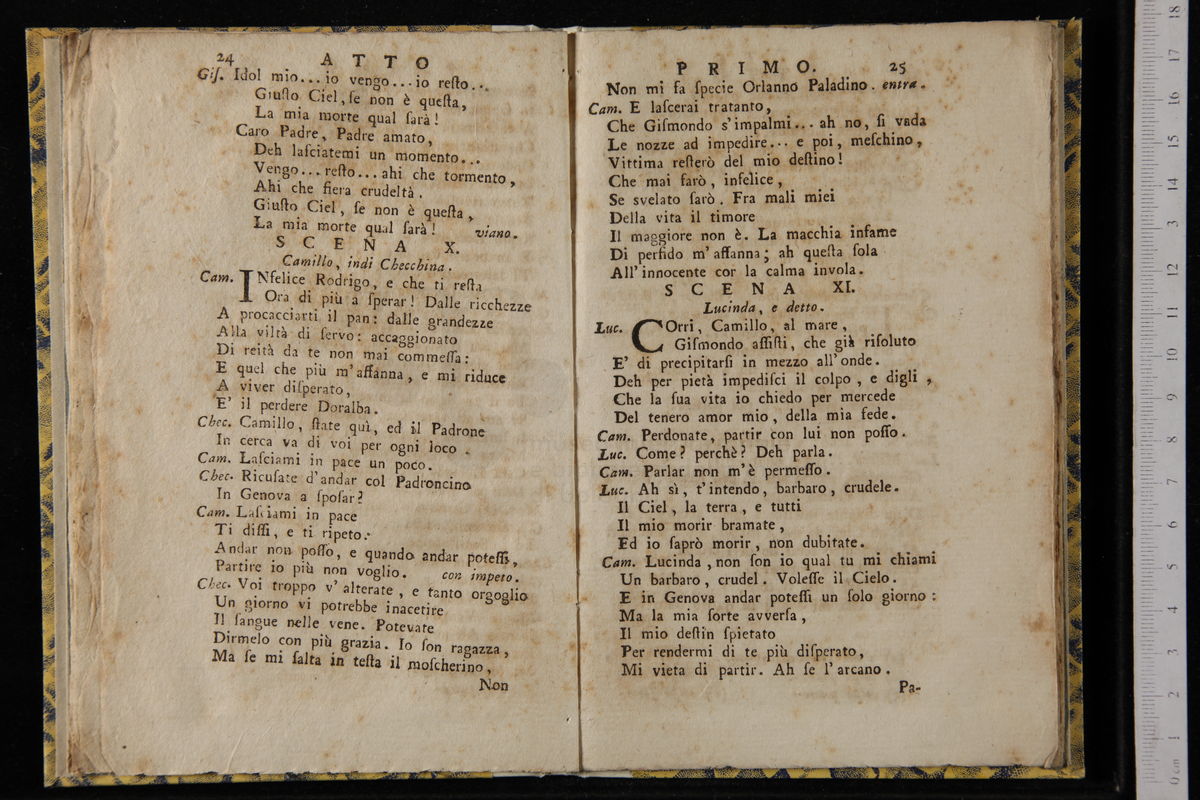 24 ATTO
Giſ. Idol mio... io vengo... io reſto...
Giuſto Ciel, ſe non è queſta,
La mia morte qual ſarà!
Caro Padre, Padre amato,
Deh laſciatemi un momento...
Vengo... reſto... ahi che tormento,
Ahi che fiera crudeltà.
Giuſto Ciel, ſe non è queſta,
La mia morte qual ſarà! viano.
SCENA X.
Camillo, indi Checchina.
Cam. INfelice Rodrigo, e che ti reſta
Ora di più a ſperar! Dalle ricchezze
A procacciarti il pan: dalle grandezze
Alla viltà di ſervo: accaggionato
Di reità da te non mai commeſſa:
E quel che più m'affanna, e mi riduce
A viver diſperato,
E' il perdere Doralba.
Chec. Camillo, ſtate quì, ed il Padrone
In cerca va di voi per ogni loco.
Cam. Laſciami in pace un poco.
Chec. Ricuſate d'andar col Padroncino
In Genova a ſpoſar?
Cam. Laſciami in pace
Ti diſſi, e ti ripeto.
Andar non poſſo, e quando andar poteſſi,
Partire io più non voglio. con impeto.
Chec. Voi troppo v'alterate, e tanto orgoglio
Un giorno vi potrebbe inacetire
Il ſangue nelle vene. Potevate
Dirmelo con più grazia. Io ſon ragazza,
Ma ſe mi ſalta in teſta il moſcherino,
Non
PRIMO. 25
Non mi fa ſpecie Orlanno Paladino. entra.
Cam. E laſcerai tratanto,
Che Giſmondo s'impalmi... ah no, ſi vada
Le nozze ad impedire... e poi, meſchino,
Vittima reſterò del mio deſtino!
Che mai farò, infelice,
Se svelato ſarò. Fra mali miei
Della vita il timore
Il maggiore non è. La macchia infame
Di perfido m'affanna; ah queſta ſola
All'innocente cor la calma invola.
SCENA XI.
Lucinda, e detto.
Luc. COrri, Camillo, al mare,
Giſmondo aſſiſti, che già riſoluto
E' di precipitarſi in mezzo all'onde.
Deh per pietà impediſci il colpo, e digli,
Che la ſua vita io chiedo per mercede
Del tenero amor mio, della mia fede.
Cam. Perdonate, partir con lui non poſſo.
Luc. Come? perchè? Deh parla.
Cam. Parlar non m'è permeſſo.
Luc. Ah sì, t'intendo, barbaro, crudele.
Il Ciel, la terra, e tutti
Il mio morir bramate,
Ed io ſaprò morir, non dubitate.
Cam. Lucinda, non ſon io qual tu mi chiami
Un barbaro, crudel. Voleſſe il Cielo.
E in Genova andar poteſſi un ſolo giorno:
Ma la mia ſorte avverſa,
Il mio deſtin ſpietato
Per rendermi di te più diſperato,
Mi vieta di partir. Ah ſe l'arcano.
Pa-
0 cm 1 2 3 4 5 6 7 8 9 10 11 12 13 14 15 16 17 18